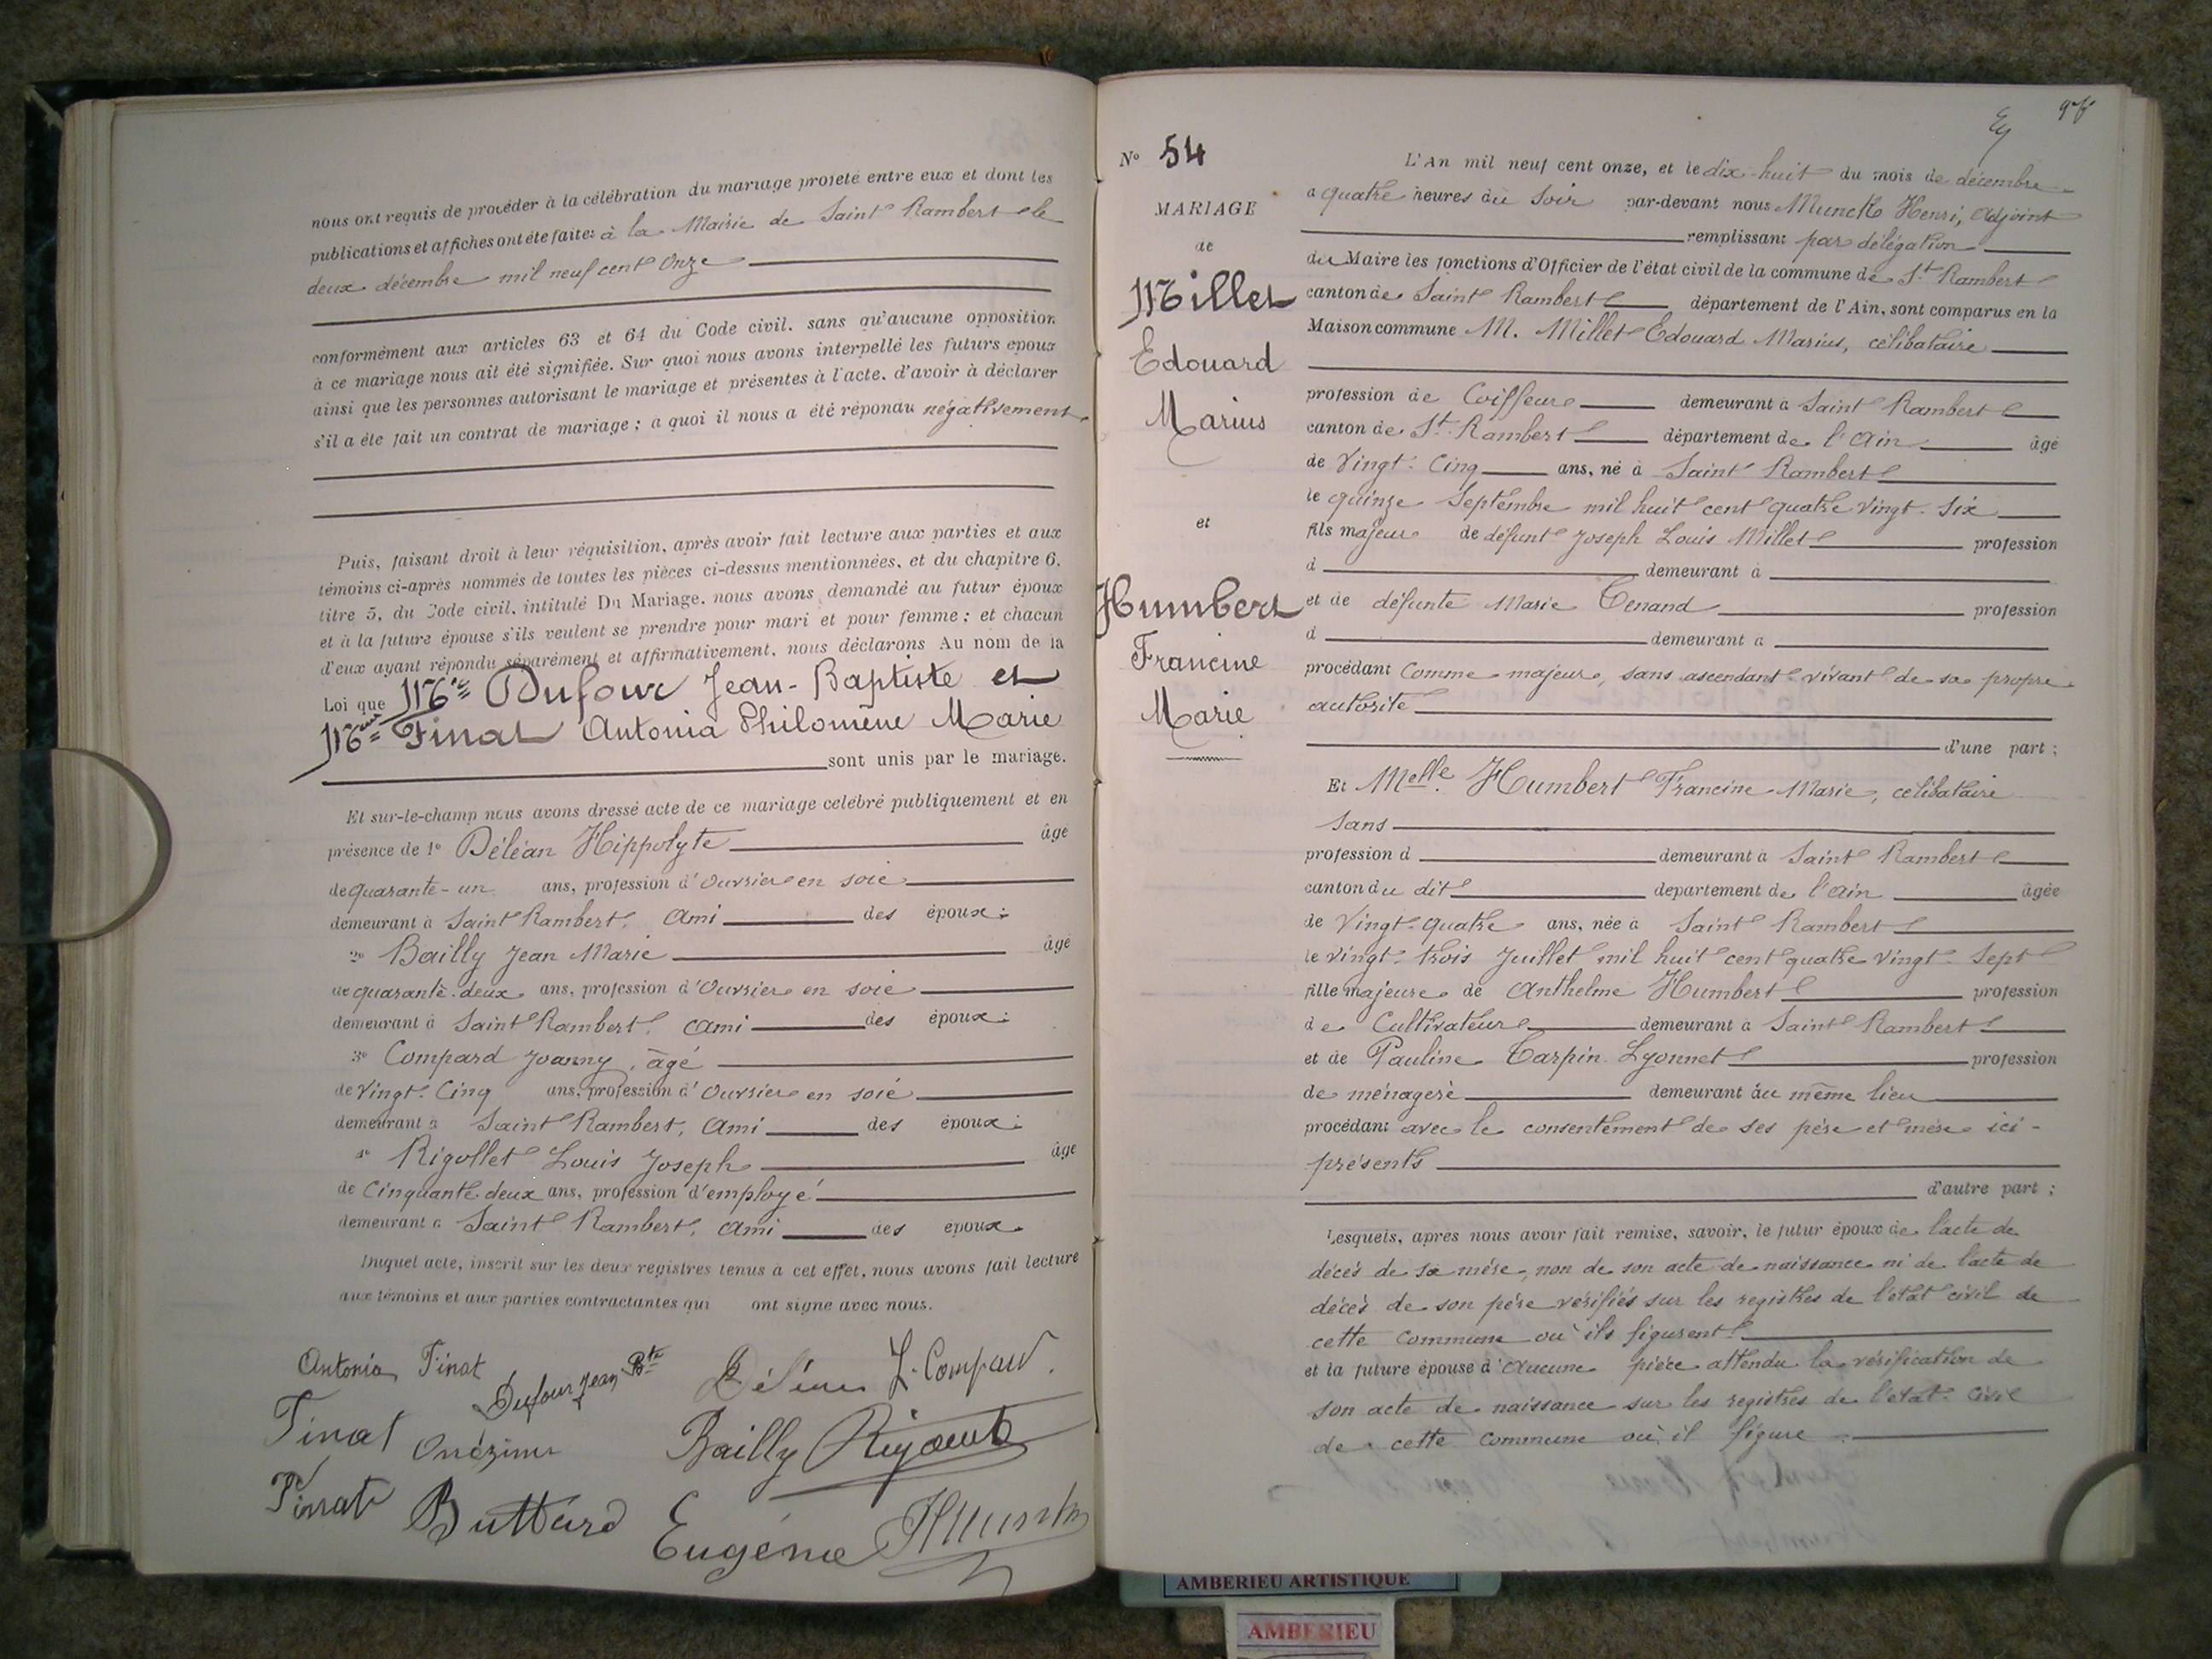 nous ont requis de procéder à la célébration du mariage projeté entre eux et dont les
publications et affiches ont été faites à la Mairie de Saint Rambert le
deux décembre mil neuf cent onze
conformément aux articles 63 et 64 du Code civil, sans qu'aucune opposition
à ce mariage nous ait été signifiée. Sur quoi nous avons interpellé les futurs époux
ainsi que les personnes autorisant le mariage et présentes à l'acte, d'avoir à déclarer
s'il a été fait un contrat de mariage ; à quoi il nous a été répondu négativement
Puis, faisant droit à leur réquisition, après avoir fait lecture aux parties et aux
témoins ci-après nommés de toutes les pièces ci-dessus mentionnées, et du chapitre 6,
titre 5, du Code civil, intitulé Du Mariage, nous avons demandé au futur époux
et à la future épouse s'ils veulent se prendre pour mari et pour femme ; et chacun
d'eux ayant répondu séparément et affirmativement, nous déclarons Au nom de la
Loi que Dufour Jean-Baptiste et
Tinat Antonia Philomène Marie
sont unis par le mariage.
Et sur-le-champ nous avons dressé acte de ce mariage célébré publiquement et en
présence de 1° Déléan Hippolyte âgé
de quarante-un ans, profession d'ouvrier en soie
demeurant à Saint Rambert, ami des époux ;
2° Bailly Jean Marie âgé
de quarante-deux ans, profession d'ouvrier en soie
demeurant à Saint Rambert, ami des époux ;
3° Compard Joanny, âgé
de vingt-cinq ans, profession d'ouvrier en soie
demeurant à Saint Rambert, ami des époux ;
4° Rigollet Louis Joseph âgé
de cinquante-deux ans, profession d'employé
demeurant à Saint Rambert, ami des époux
Duquel acte, inscrit sur les deux registres tenus à cet effet, nous avons fait lecture
aux témoins et aux parties contractantes qui ont signé avec nous.
Antonia Tinat Dufour Jean Bte
Tinat Onézime Bailly
Buttard Eugénie
N° 54
MARIAGE
de
Millet
Edouard
Marius
et
Humbert
Francine
Marie
L'An mil neuf cent onze, et le dix-huit du mois de décembre
à quatre heures du soir par-devant nous Munck Henri, adjoint
remplissant par délégation
du Maire les fonctions d'Officier de l'état civil de la commune de St Rambert
canton de Saint Rambert département de l'Ain, sont comparus en la
Maison commune M. Millet Edouard Marius, célibataire
profession de Coiffeur demeurant à Saint Rambert
canton de St Rambert département de l'Ain âgé
de vingt-cinq ans, né à Saint Rambert
le quinze septembre mil huit cent quatre vingt-six
fils majeur de défunt Joseph Louis Millet profession
d demeurant à
et de défunte Marie Tenand profession
d demeurant à
procédant comme majeur, sans ascendant vivant de sa propre
autorité
d'une part ;
Et Melle Humbert Francine Marie, célibataire
sans
profession d demeurant à Saint Rambert
canton du dit département de l'Ain âgée
de vingt-quatre ans, née à Saint Rambert
le vingt-trois Juillet mil huit cent quatre vingt-sept
fille majeure de Anthelme Humbert profession
de Cultivateur demeurant à Saint Rambert
et de Pauline Carpin Lyonnet profession
de ménagère demeurant au même lieu
procédant avec le consentement de ses père et mère ici-
présents
d'autre part ;
Lesquels, après nous avoir fait remise, savoir, le futur époux de l'acte de
décès de sa mère, non de son acte de naissance ni de l'acte de
décès de son père vérifiés sur les registres de l'état civil de
cette commune où ils figurent
et la future épouse d'aucune pièce attendu la vérification de
son acte de naissance sur les registres de l'état civil
de cette commune où il figure
AMBERIEU ARTISTIQUE
AMBERIEU